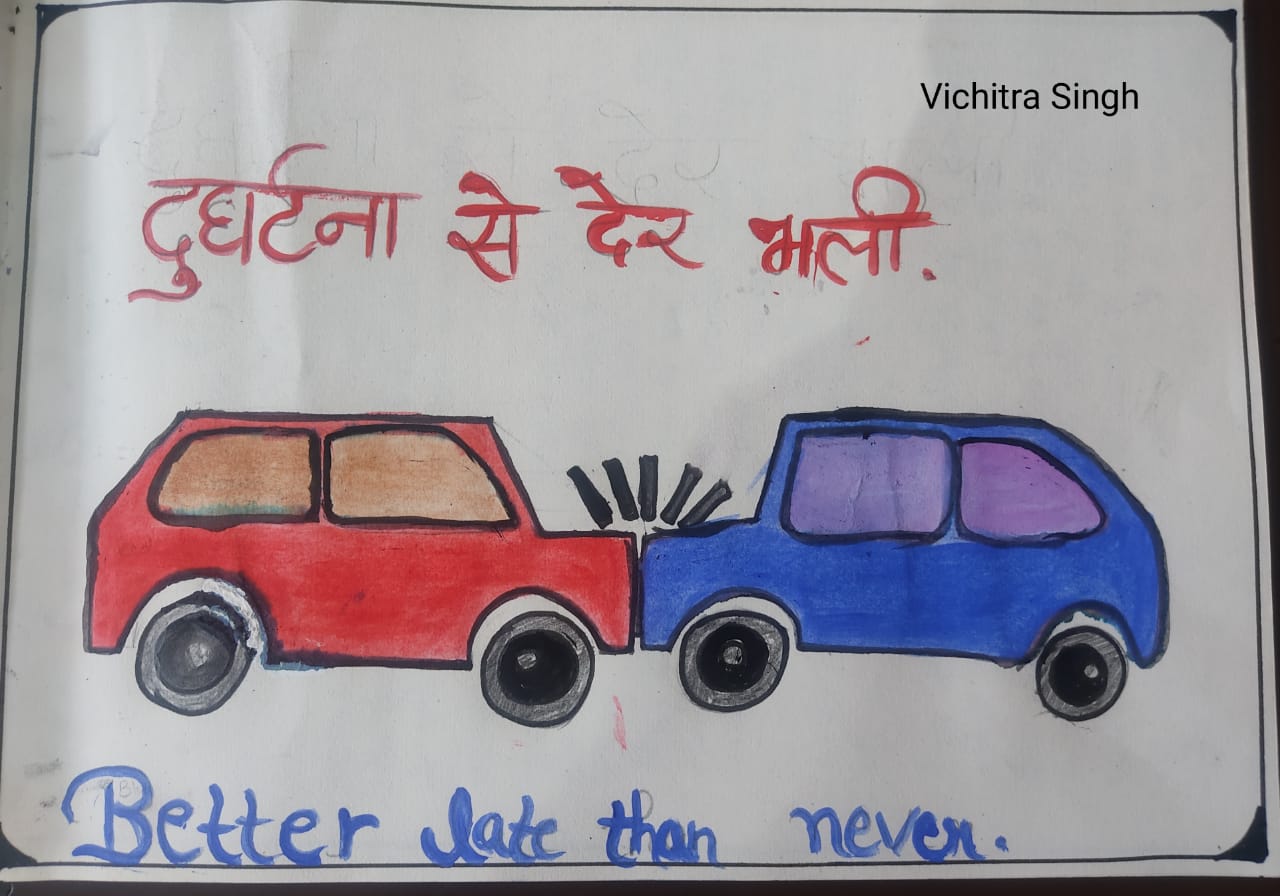 Vichitra Singh
दुघर्टना से देर भली.
Better late than never.